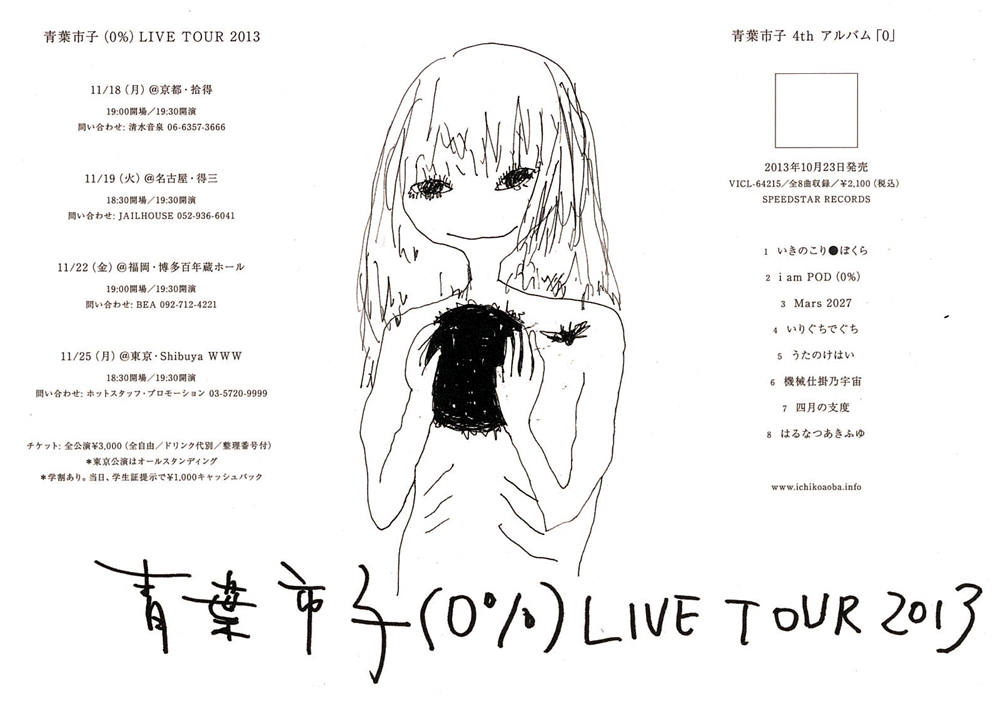 青葉市子 (0%) LIVE TOUR 2013
11/18 (月) @京都・拾得
19:00開場／19:30開演
問い合わせ: 清水音泉 06-6357-3666
11/19 (火) @名古屋・得三
18:30開場／19:30開演
問い合わせ: JAILHOUSE 052-936-6041
11/22 (金) @福岡・博多百年蔵ホール
19:00開場／19:30開演
問い合わせ: BEA 092-712-4221
11/25 (月) @東京・Shibuya WWW
18:30開場／19:30開演
問い合わせ: ホットスタッフ・プロモーション 03-5720-9999
チケット: 全公演¥3,000 (全自由／ドリンク代別／整理番号付)
*東京公演はオールスタンディング
*学割あり。当日、学生証提示で¥1,000キャッシュバック
青葉市子 4th アルバム「0」
2013年10月23日発売
VICL-64215／全8曲収録／¥2,100 (税込)
SPEEDSTAR RECORDS
1 いきのこり●ぼくら
2 i am POD (0%)
3 Mars 2027
4 いりぐちでぐち
5 うたのけはい
6 機械仕掛乃宇宙
7 四月の支度
8 はるなつあきふゆ
www.ichikoaoba.info
青葉市子 (0%) LIVE TOUR 2013